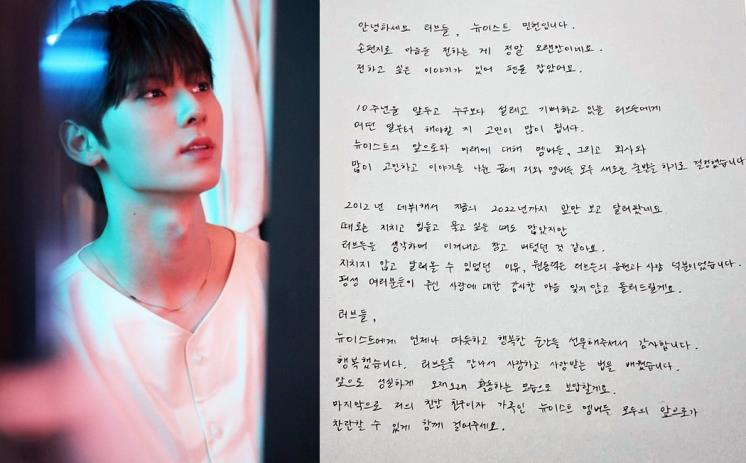 안녕하세요 러브들, 뉴이스트 민현입니다.
손편지로 마음을 전하는 게 정말 오랜만이네요.
전하고 싶은 이야기가 있어 펜을 잡았어요.
10주년을 앞두고 누구보다 설레고 기뻐하고 있을 러브들에게
어떤 말부터 해야할 지 고민이 많이 됩니다.
뉴이스트의 앞으로와 미래에 대해 멤버들, 그리고 회사와
많이 고민하고 이야기를 나눈 끝에 저와 멤버들 모두 새로운 출발을 하기로 결정했습니다
2012년 데뷔해서 지금의 2022년까지 앞만 보고 달려왔네요
때로는 지치고 힘들고 울고 싶을 때도 많았지만
러브들을 생각하며 이겨내고 참고 버텼던 것 같아요.
지치지 않고 달려올 수 있었던 이유, 원동력은 러브들의 응원과 사랑 덕분이었습니다.
평생 여러분들이 주신 사랑에 대한 감사한 마음 잊지 않고 돌려드릴게요.
러브들,
뉴이스트에게 언제나 따뜻하고 행복한 순간들을 선물해주셔서 감사합니다.
행복했습니다. 러브들을 만나서 사랑하고 사랑받는 법을 배웠습니다.
앞으로 성실하게 오래오래 활동하는 모습으로 보답할게요.
마지막으로 저의 친한 친구이자 가족인 뉴이스트 멤버들 모두의 앞으로가
찬란할 수 있게 함께 걸어주세요.